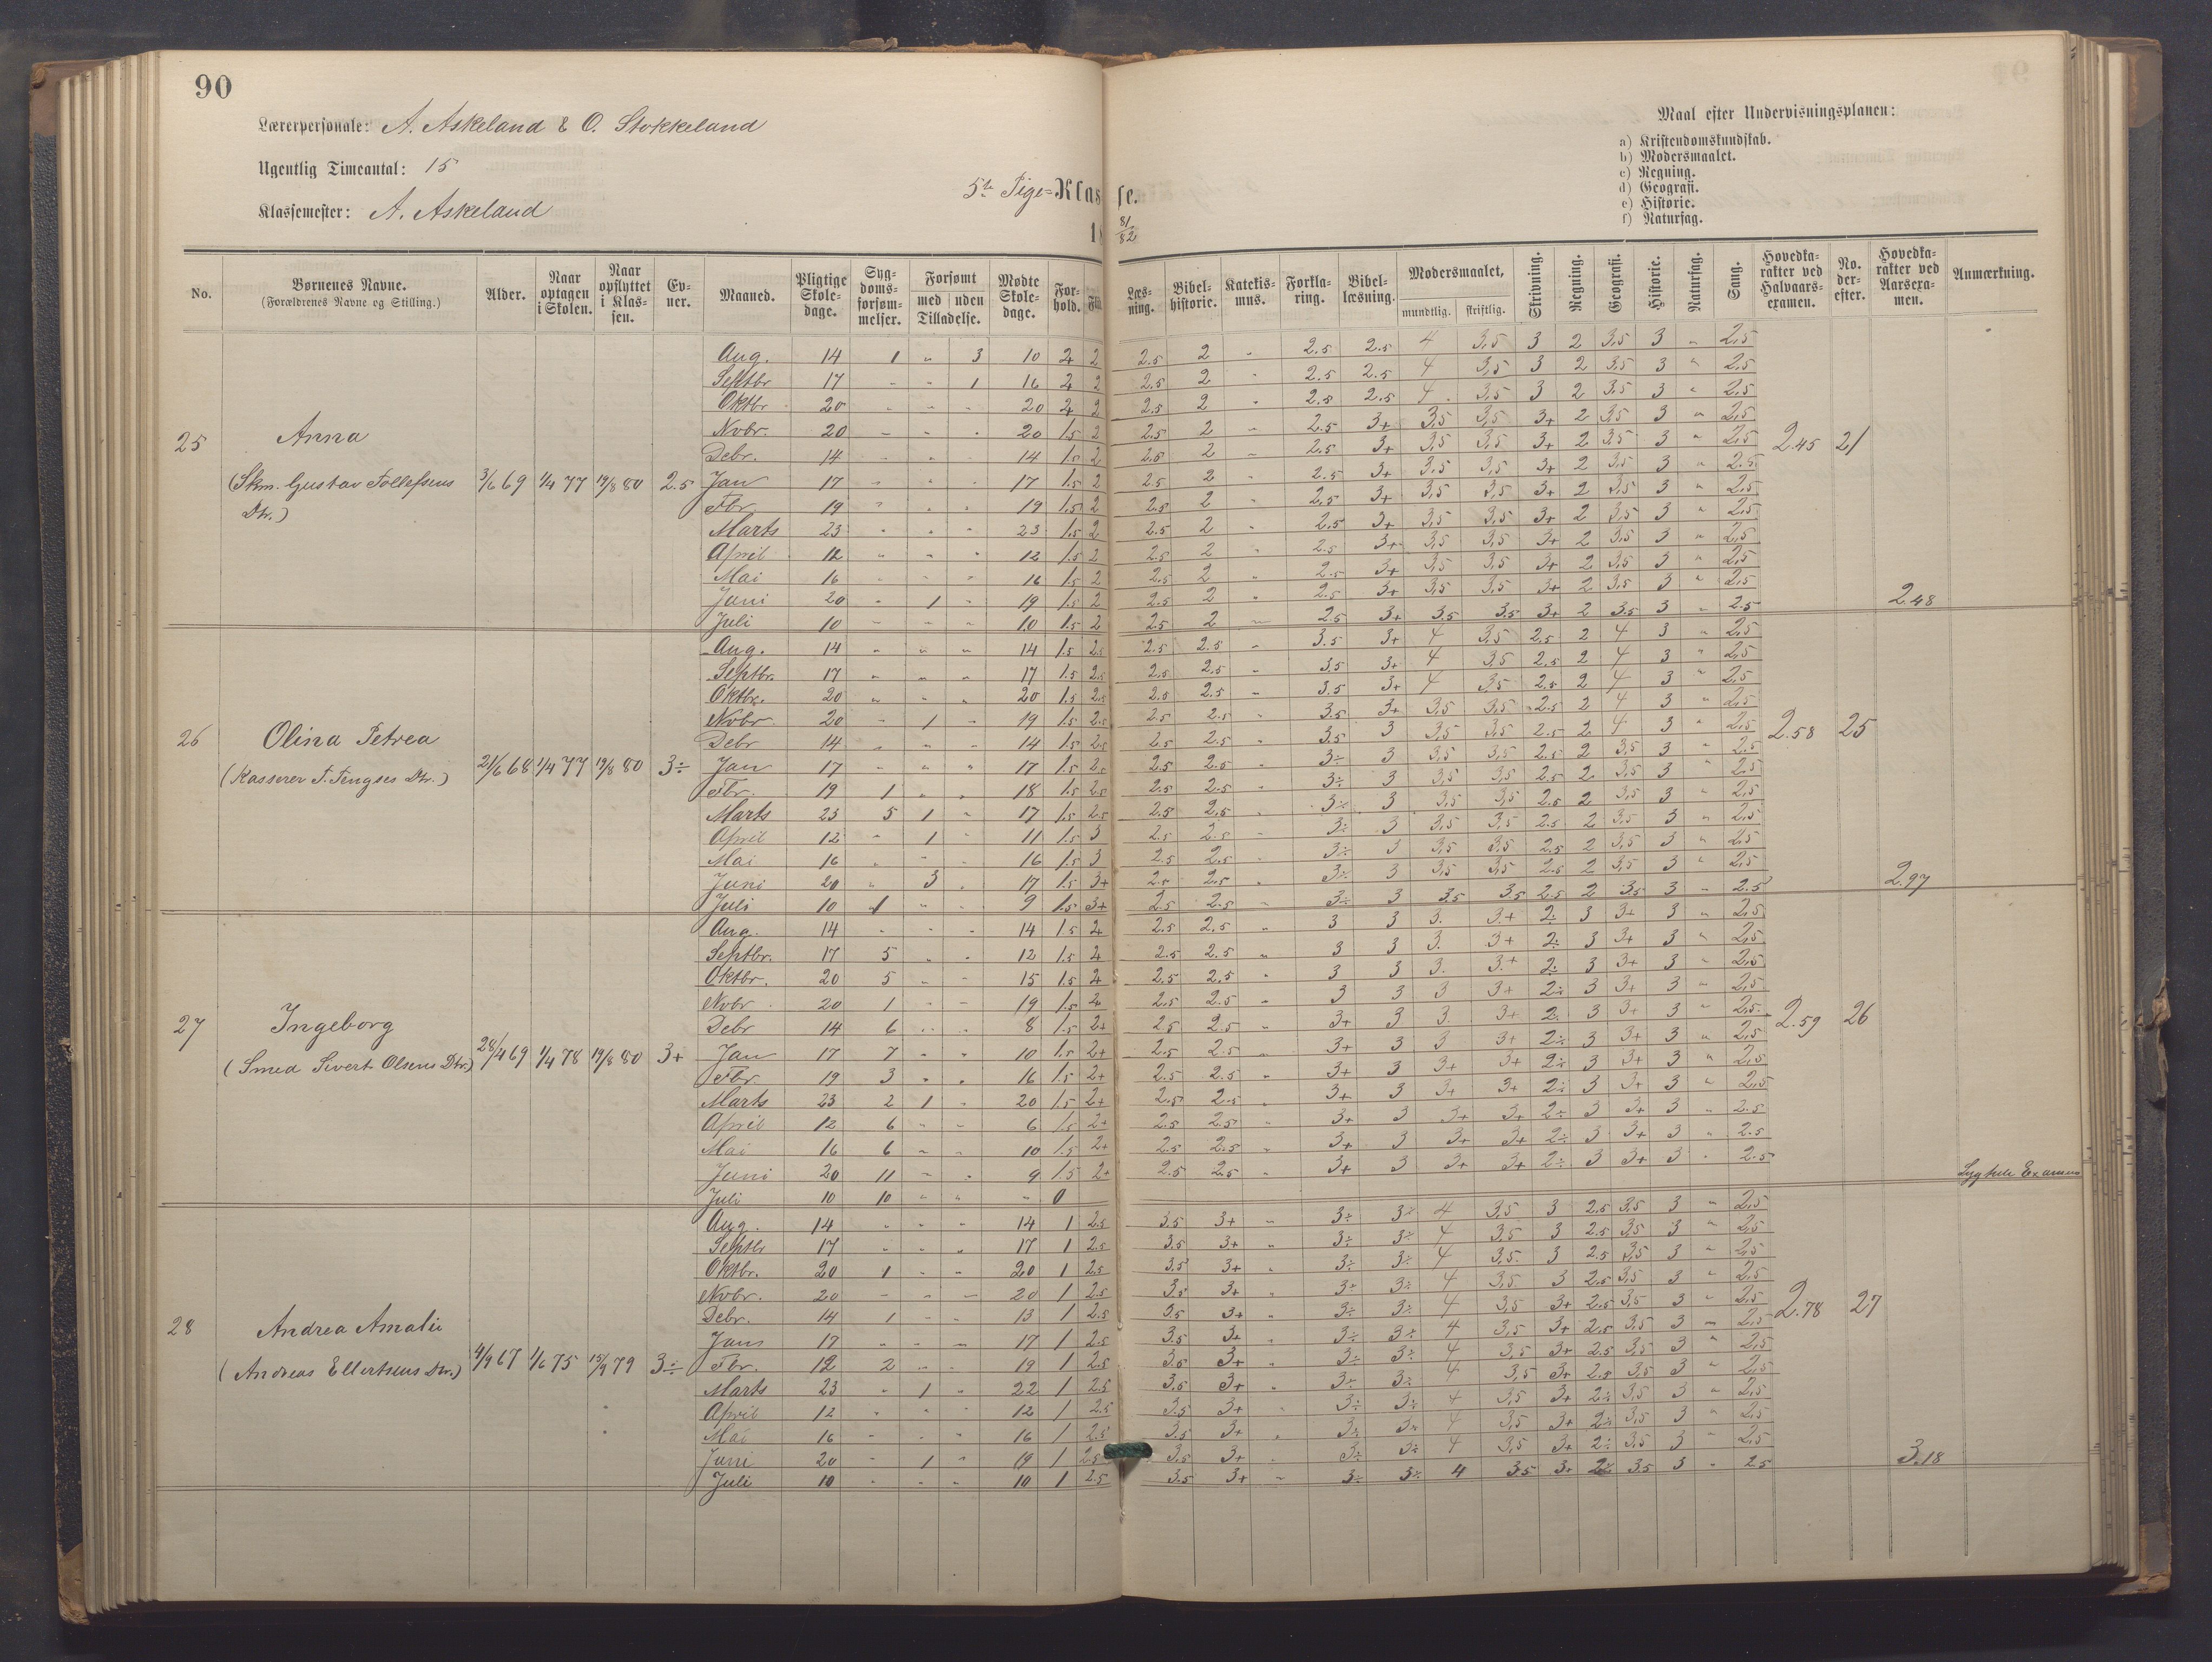 90
Lærerpersonale: A. Askeland & O. Stokkeland
Ugentlig Timeantal: 15
Klassemester: A. Askeland
5te Pige-Klasse.
18 81/82
Maal efter Undervisningsplanen:
a) Kristendomskundskab.
b) Modersmaalet.
c) Regning.
d) Geografi.
e) Historie.
f) Naturfag.
No. Børnenes Navne. (Forældrenes Navne og Stilling.) Alder. Naar optagen i Skolen. Naar opflyttet i Klassen. Evner. Maaned. Pligtige Skoledage. Sygdomsforsømmelser. Forsømt med uden Tilladelse. Mødte Skoledage. Forhold. Læsning. Bibelhistorie. Katekismus. Forklaring. Bibellæsning. Modersmaalet, mundtlig. skriftlig. Skrivning. Regning. Geografi. Historie. Naturfag. Sang. Hovedkarakter ved Halvaarsexamen. No. derefter. Hovedkarakter ved Aarsexamen. Anmærkning.
25 Anna
(Skm. Gustav Tollefsens Dtr.) 3/6 69 1/4 77 19/8 80 2.5
Aug. 14 1 „ 3 10 2 2 2.5 2 „ 2.5 2.5 4 3,5 3 2 3,5 3 „ 2,5
Septbr 17 „ „ 1 16 2 2 2.5 2 „ 2.5 2.5 4 3,5 3 2 3,5 3 „ 2,5
Oktbr 20 „ „ „ 20 2 2 2.5 2 „ 2.5 2.5 4 3,5 3 2 3,5 3 „ 2,5
Novbr. 20 „ „ „ 20 1.5 2 2.5 2 „ 2.5 3+ 3,5 3,5 3+ 2 3,5 3 „ 2,5
Debr. 14 „ „ „ 14 1.5 2 2.5 2 „ 2.5 3+ 3,5 3,5 3+ 2 3,5 3 „ 2,5 2.45 21
Jan 17 „ „ „ 17 1.5 2 2.5 2 „ 2.5 3+ 3,5 3,5 3+ 2 3,5 3 „ 2.5
Fbr. 19 „ „ „ 19 1.5 2 2.5 2 „ 2.5 3+ 3,5 3,5 3+ 2 3,5 3 „ 2,5
Marts 23 „ „ „ 23 1.5 2 2.5 2 „ 2.5 3+ 3,5 3,5 3+ 2 3,5 3 „ 2,5
April 12 „ „ „ 12 1.5 2 2.5 2 „ 2.5 3+ 3,5 3,5 3+ 2 3,5 3 „ 2,5
Mai 16 „ „ „ 16 1.5 2 2.5 2 „ 2.5 3+ 3,5 3,5 3+ 2 3,5 3 „ 2,5
Juni 20 „ 1 „ 19 1.5 2 2.5 2 „ 2.5 3+ 3,5 3,5 3+ 2 3,5 3 „ 2,5
Juli 10 „ „ „ 10 1.5 2 2.5 2 „ 2.5 3+ 3.5 3.5 3+ 2 3.5 3 „ 2.5 2.48
26 Olina Petrea
(Kasserer T. Tengses Dtr.) 21/6 68 1/4 77 19/8 80 3÷
Aug. 14 „ „ „ 14 1.5 2.5 2.5 2.5 „ 3.5 3+ 4 3,5 2.5 2 4 3 „ 2,5
Septbr. 17 „ „ „ 17 1.5 2.5 2.5 2.5 „ 3.5 3+ 4 3,5 2.5 2 4 3 „ 2,5
Oktbr. 20 „ „ „ 20 1.5 2.5 2.5 2.5 „ 3.5 3+ 4 3,5 2.5 2 4 3 „ 2,5
Novbr 20 „ 1 „ 19 1.5 2.5 2.5 2.5 „ 3.5 3+ 3,5 3,5 2.5 2 4 3 „ 2,5
Debr 14 „ „ „ 14 1.5 2.5 2.5 2.5 „ 3.5 3 3,5 3,5 2.5 2 4 3 „ 2,5 2.58 25
Jan 17 „ „ „ 17 1.5 2.5 2.5 2.5 „ 3÷ 3 3,5 3,5 2.5 2 3,5 3 „ 2,5
Fbr. 19 1 „ „ 18 1.5 2.5 2.5 2.5 „ 3÷ 3 3,5 3,5 2.5 2 3,5 3 „ 2,5
Marts 23 5 1 „ 17 1.5 2.5 2.5 2.5 „ 3÷ 3 3,5 3,5 2.5 2 3,5 3 „ 2,5
April 12 „ 1 „ 11 1.5 3 2.5 2.5 „ 3÷ 3 3,5 3,5 2.5 2 3,5 3 „ 2,5
Mai 16 „ „ „ 16 1.5 3 2.5 2.5 „ 3÷ 3 3,5 3,5 2.5 2 3,5 3 „ 2,5
Juni 20 „ 3 „ 17 1.5 3+ 2.5 2.5 „ 3÷ 3 3,5 3,5 2.5 2 3,5 3 „ 2,5
Juli 10 1 „ „ 9 1.5 3+ 2.5 2.5 „ 3÷ 3 3.5 3.5 2.5 2 3.5 3 „ 2.5 2.97
27 Ingeborg
(Smed Sivert Olsens Dtr.) 28/4 69 1/4 78 19/8 80 3+
Aug. 14 „ „ „ 14 1.5 2 2.5 2.5 „ 3 3 3. 3+ 2÷ 3 3+ 3 „ 2,5
Septbr. 17 5 „ „ 12 1.5 2 2.5 2.5 „ 3 3 3. 3+ 2÷ 3 3+ 3 „ 2,5
Oktbr. 20 5 „ „ 15 1.5 2 2.5 2.5 „ 3 3 3. 3+ 2÷ 3 3+ 3 „ 2,5
Novbr. 20 1 „ „ 19 1.5 2 2.5 2.5 „ 3 3 3 3+ 2÷ 3 3+ 3 „ 2,5
Debr 14 6 „ „ 8 1.5 2+ 2.5 2.5 „ 3+ 3 3. 3+ 2÷ 3 3+ 3 „ 2,5 2.59 26
Jan 17 7 „ „ 10 1.5 2+ 2.5 2.5 „ 3+ 3 3 3+ 2÷ 3 3+ 3 „ 2,5
Fbr 19 3 „ „ 16 1.5 2+ 2.5 2.5 „ 3+ 3 3+ 3+ 2÷ 3 3+ 3 „ 2,5
Marts 23 2 1 „ 20 1.5 2+ 2.5 2.5 „ 3+ 3 3+ 3+ 2÷ 3 3+ 3 „ 2,5
April 12 6 „ „ 6 1.5 2+ 2.5 2.5 „ 3+ 3 3+ 3+ 2÷ 3 3+ 3 „ 2.5
Mai 16 6 „ „ 10 1.5 2+ 2.5 2.5 „ 3+ 3 3+ 3+ 2÷ 3 3+ 3 „ 2.5
Juni 20 11 „ „ 9 1.5 2+ 2.5 2.5 „ 3+ 3 3+ 3+ 2÷ 3 3+ 3 „ 2.5
Juli 10 10 „ „ „ 0 Examen
28 Andrea Amalie
(Andreas Ellertsens Dtr.) 4/9 67 1/6 75 15/9 79 3÷
Aug. 14 „ „ „ 14 1 2.5 3.5 3+ „ 3÷ 3÷ 4 3,5 3 2.5 3,5 3 „ 2,5
Septbr 17 „ „ „ 17 1 2.5 3.5 3+ „ 3÷ 3÷ 4 3,5 3 2.5 3,5 3 „ 2,5
Oktbr. 20 1 „ „ 20 1 2.5 3.5 3+ „ 3÷ 3÷ 4 3,5 3 2.5 3,5 3 „ 2,5
Novbr. 20 „ „ „ 20 1 2.5 3.5 3+ „ 3÷ 3÷ 4 3,5 3 2.5 3,5 3 „ 2,5
Debr. 14 1 „ „ 13 1 2.5 3.5 3+ „ 3÷ 3÷ 4 3,5 3+ 2.5 3,5 3 „ 2,5 2.78 27
Jan 17 „ „ „ 17 1 2.5 3.5 3+ „ 3÷ 3÷ 4 3,5 3+ 2.5 3,5 3 „ 2,5
Fbr. 12 2 „ „ 19 1 2.5 3.5 3+ „ 3÷ 3÷ 4 3,5 3+ 2.5 3,5 3 „ 2,5
Marts 23 „ 1 „ 22 1 2.5 3.5 3+ „ 3÷ 3÷ 4 3,5 3+ 2.5 3,5 3 „ 2,5
April 12 „ „ „ 12 1 2.5 3.5 3+ „ 3÷ 3÷ 4 3,5 3+ 2÷ 3,5 3 „ 2,5
Mai 16 „ „ „ 16 1 2.5 3.5 3+ „ 3÷ 3÷ 4 3,5 3+ 2÷ 3,5 3 „ 2,5
Juni 20 „ 1 „ 19 1 2.5 3.5 3+ „ 3÷ 3÷ 4 3,5 3+ 2÷ 3,5 3 „ 2,5
Juli 10 „ „ „ 10 1 2.5 3.5 3+ „ 3÷ 3÷ 4 3.5 3+ 2÷ 3.5 3 „ 2.5 3.18